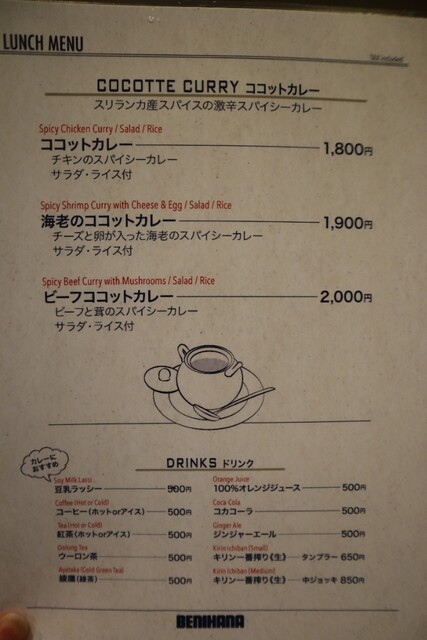 LUNCH MENU
Tax included
COCOTTE CURRY ココットカレー
スリランカ産スパイスの激辛スパイシーカレー
Spicy Chicken Curry / Salad / Rice
ココットカレー 1,800円
チキンのスパイシーカレー
サラダ・ライス付
Spicy Shrimp Curry with Cheese & Egg / Salad / Rice
海老のココットカレー 1,900円
チーズと卵が入った海老のスパイシーカレー
サラダ・ライス付
Spicy Beef Curry with Mushrooms / Salad / Rice
ビーフココットカレー 2,000円
ビーフと茸のスパイシーカレー
サラダ・ライス付
DRINKS ドリンク
カレーに
おすすめ
Soy Milk Lassi
豆乳ラッシー 500円
Coffee (Hot or Cold)
コーヒー(ホットorアイス) 500円
Tea (Hot or Cold)
紅茶(ホットorアイス) 500円
Oolong Tea
ウーロン茶 500円
Ayataka (Cold Green Tea)
綾鷹(緑茶) 500円
Orange Juice
100%オレンジジュース 500円
Coca-Cola
コカコーラ 500円
Ginger Ale
ジンジャーエール 500円
Kirin Ichiban (Small)
キリン一番搾り《生》 タンブラー 650円
Kirin Ichiban (Medium)
キリン一番搾り《生》 中ジョッキ 850円
BENIHANA